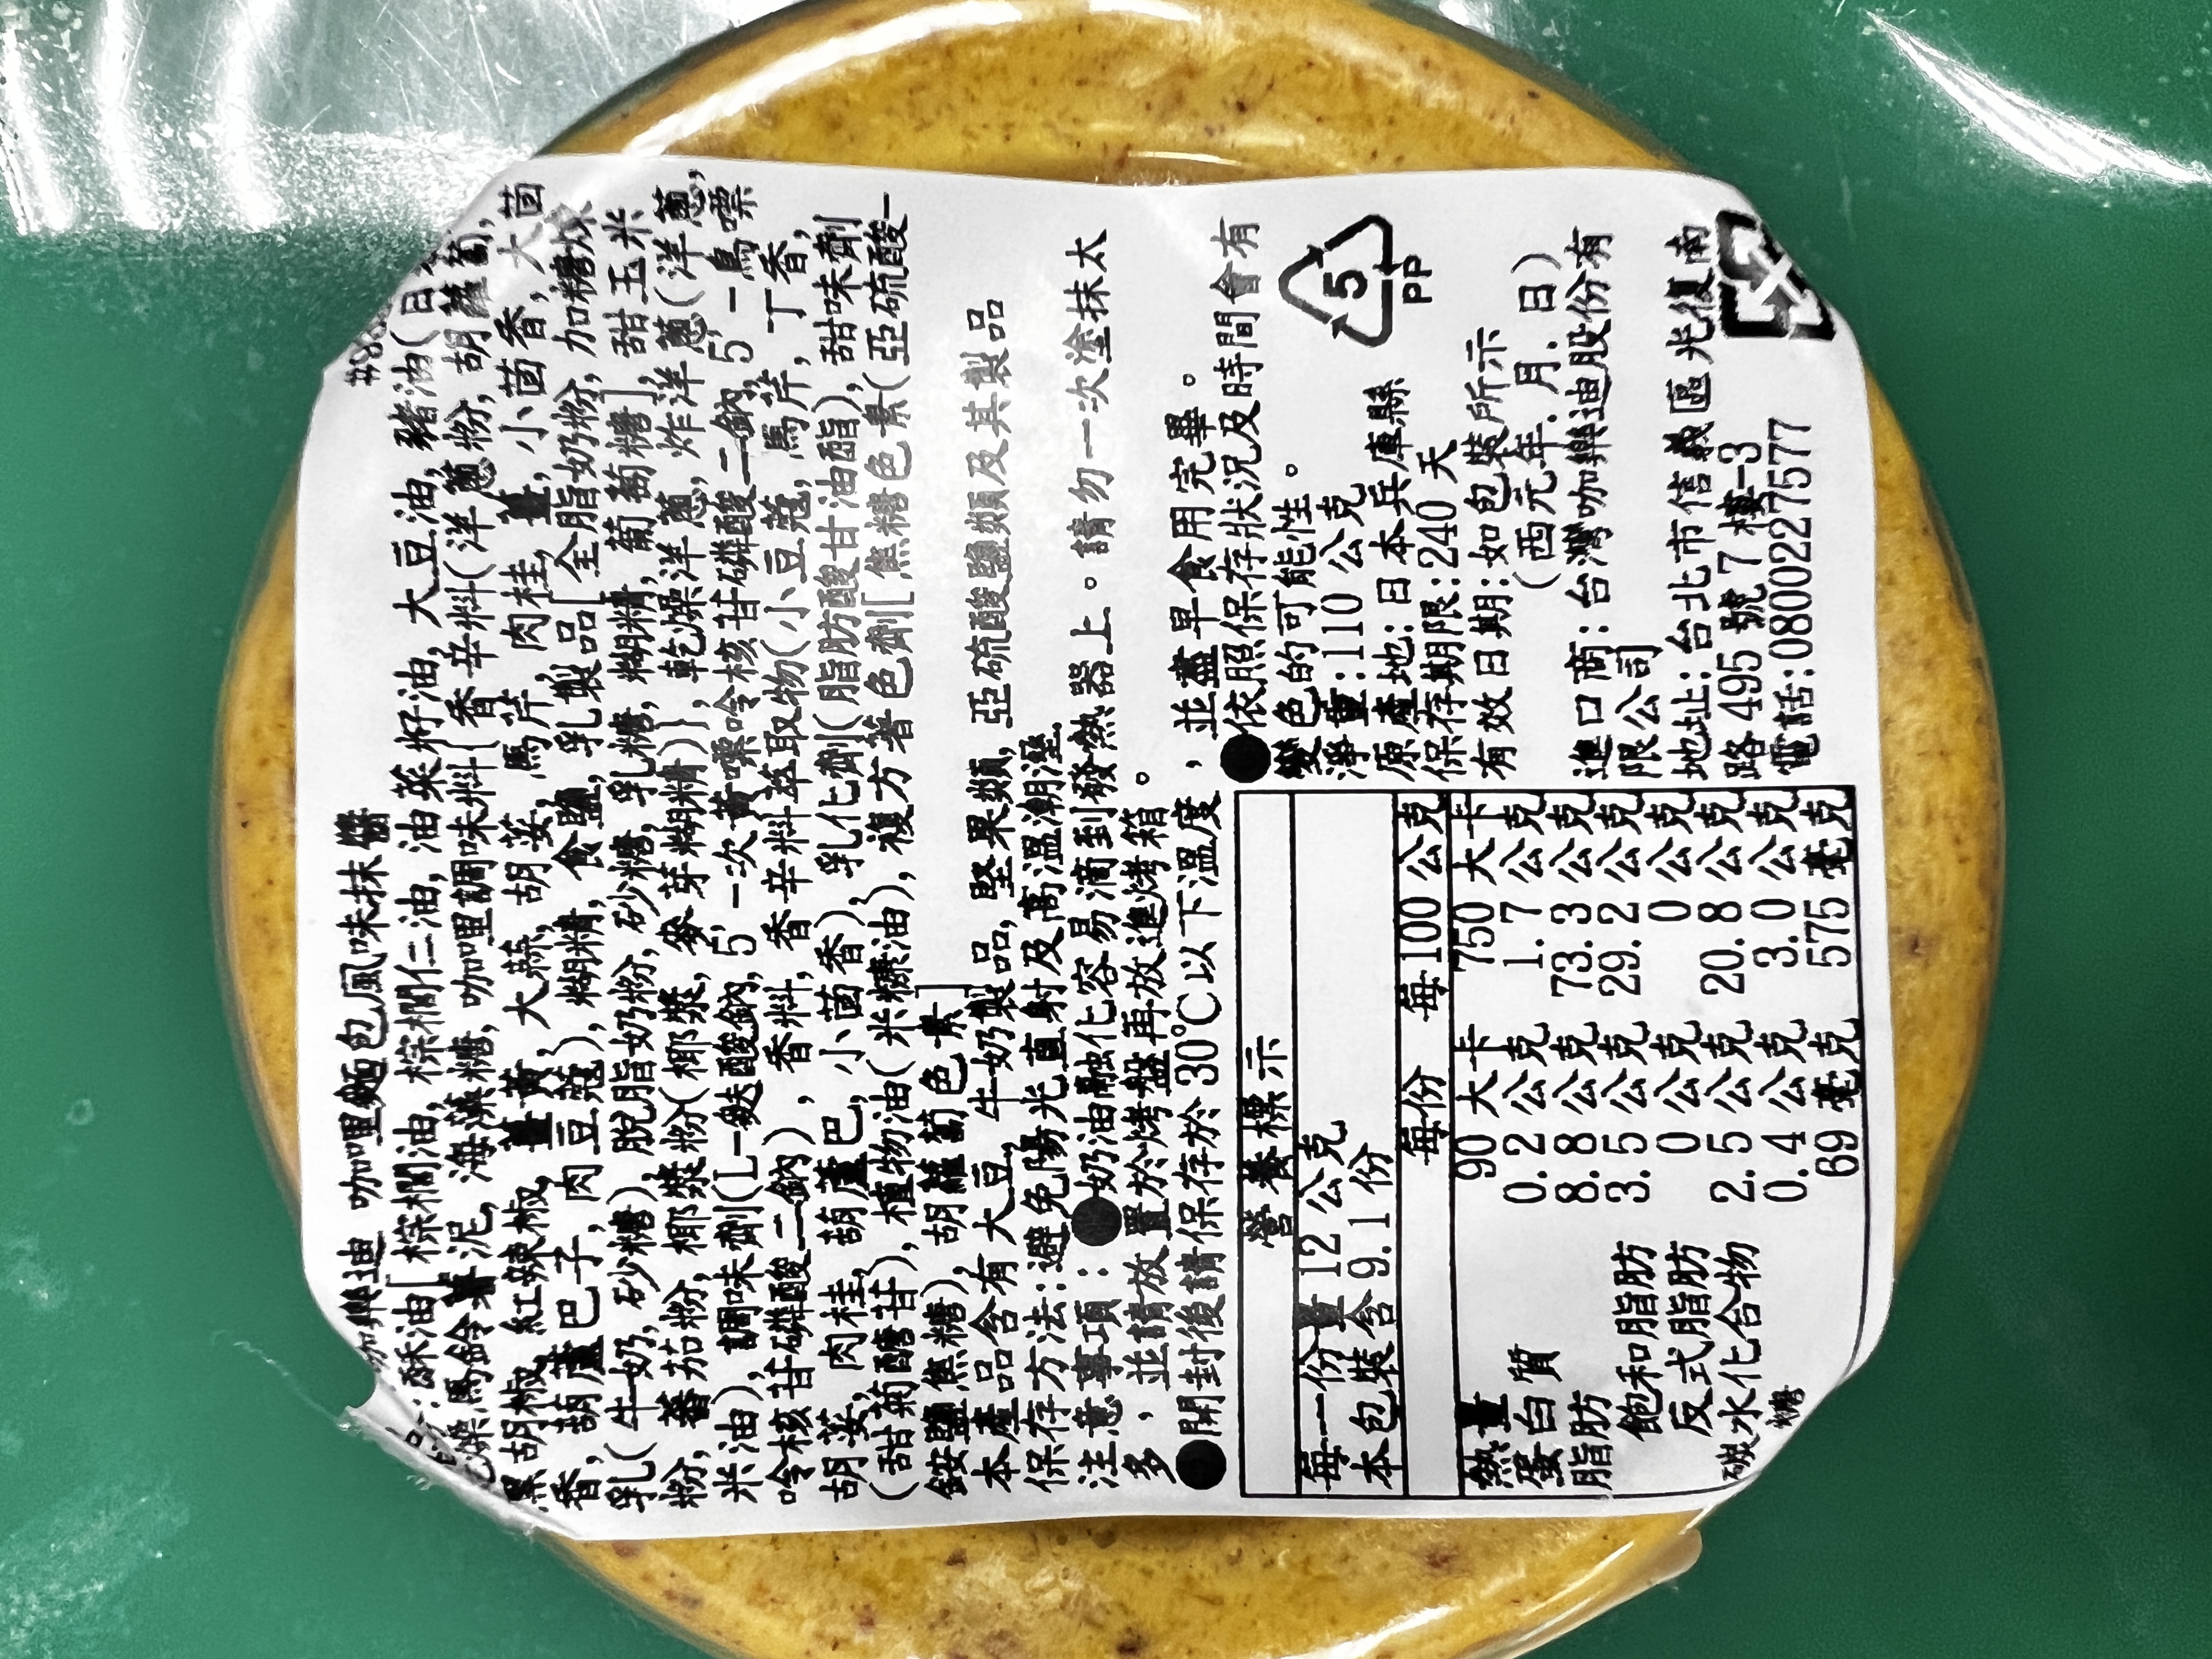 咖樂迪 咖哩麵包風味抹醬
:酥油[棕櫚油,棕櫚仁油,油菜籽油,大豆油,豬油(日
乾燥馬鈴薯泥,海藻糖,咖哩調味料{香辛料(洋蔥粉,胡蘿蔔,
黑胡椒,紅辣椒,薑黃,大蒜,胡荽,馬芹,肉桂,薑,小茴香,大茴
香,葫蘆巴子,肉豆蔻),糊精,食鹽,乳製品[全脂奶粉,加糖煉
乳(牛奶,砂糖),脫脂奶粉,砂糖,乳糖,糊精,葡萄糖],甜玉米
粉,蕃茄粉,椰漿粉(椰漿,麥芽糊精)},乾燥洋蔥,炸洋蔥(洋蔥,
米油),調味劑(L-麩酸鈉,5'-次黃嘌呤核苷磷酸二鈉,5'-鳥嘌
呤核苷磷酸二鈉),香料,香辛料萃取物(小豆蔻,馬芹,丁香,
胡荽,肉桂,葫蘆巴,小茴香),乳化劑(脂肪酸甘油酯),甜味劑
(甜菊醣苷),植物油(米糠油),複方著色劑[焦糖色素(亞硫酸-
銨鹽焦糖),胡蘿蔔色素]
本產品含有大豆,牛奶製品,堅果類,亞硫酸鹽類及其製品
保存方法:避免陽光直射及高溫潮溼
注意事項:●奶油融化容易滴到發熱器上。請勿一次塗抹太
多,並請放置於烤盤再放進烤箱。
●開封後請保存於30℃以下溫度,並盡早食用完畢。
●依照保存狀況及時間會有
變色的可能性。
淨重:110 公克
原產地:日本兵庫縣
保存期限:240 天
有效日期:如包裝所示
(西元年.月.日)
進口商:台灣咖樂迪股份有
限公司
地址:台北市信義區光復南
路 495 號 7 樓-3
電話:0800227577
5
PP
營養標示
每一份量 12 公克
本包裝含 9.1 份
每份 每100 公克
熱量 90 大卡 750 大卡
蛋白質 0.2 公克 1.7 公克
脂肪 8.8 公克 73.3 公克
飽和脂肪 3.5 公克 29.2 公克
反式脂肪 0 公克 0 公克
碳水化合物 2.5 公克 20.8 公克
糖 0.4 公克 3.0 公克
69 毫克 575 毫克